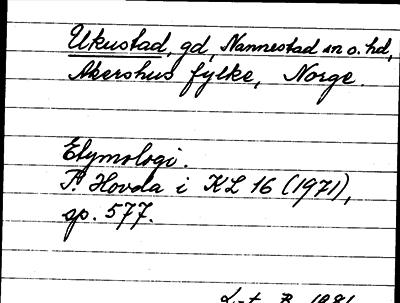 Ukustad, gd, Nannestad sn o. hd,
Akershus fylke, Norge.
Etymologi.
P. Hovda i KL 16 (1971),
sp. 577.
1981